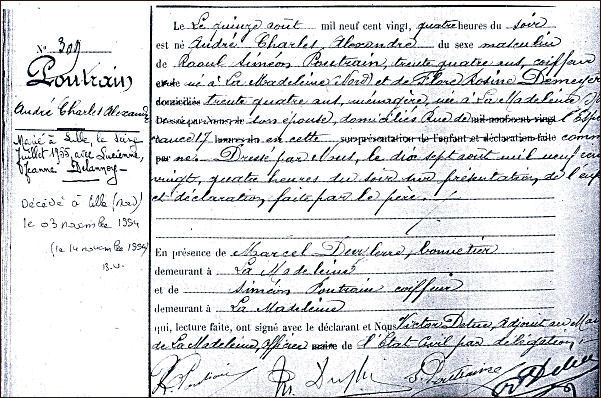 N° 309
Poutrain
André Charles Alexandre
Marié à Lille, le seize
juillet 1955, avec Lucienne
Jeanne Delannoy
Décédé à Lille (Nord)
le 03 novembre 1994
(le 14 novembre 1994)
Le Le quinze août mil neuf cent vingt, quatre heures du soir
est né André Charles Alexandre du sexe masculin
de Raoul Siméon Poutrain, trente quatre ans, coiffeur
né à La Madeleine (Nord) et de Flore Rosine Demeyer
domiciliés trente quatre ans, ménagère, née à La Madeleine
son épouse, domiciliés Rue de l'Espé
rance 17 en cette sur présentation de l'enfant et déclaration faite comme
par né. Dressé par Nous, le dix sept août mil neuf cent
vingt, quatre heures du soir sur présentation de l'enf
et déclaration faite par le père.
En présence de Marcel bonnetier
demeurant à La Madeleine
et de Siméon Poutrain coiffeur
demeurant à La Madeleine
qui, lecture faite, ont signé avec le déclarant et Nous Victor adjoint au Mai
de La Madeleine, officier de l'Etat Civil par délégation.